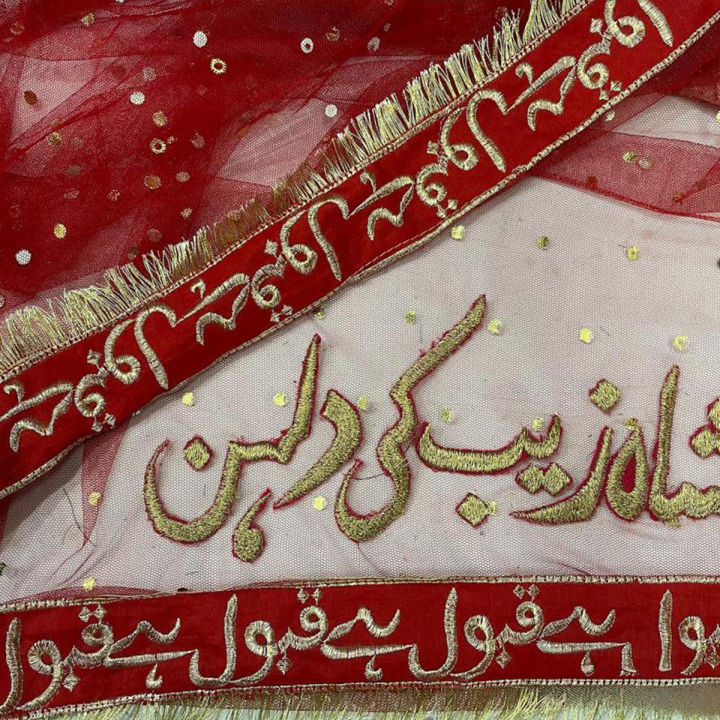 قبول ہے قبول ہے قبول ہے قبول ہے
شاہ زیب کی دلہن
ہے قبول ہے قبول ہے قبول